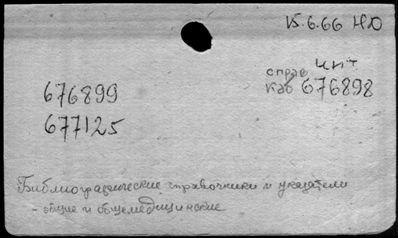 15.6.66 НО
чит
справ
каб 676898
676899
677125
Библиографические справочники и указатели
- общие и общемедицинские